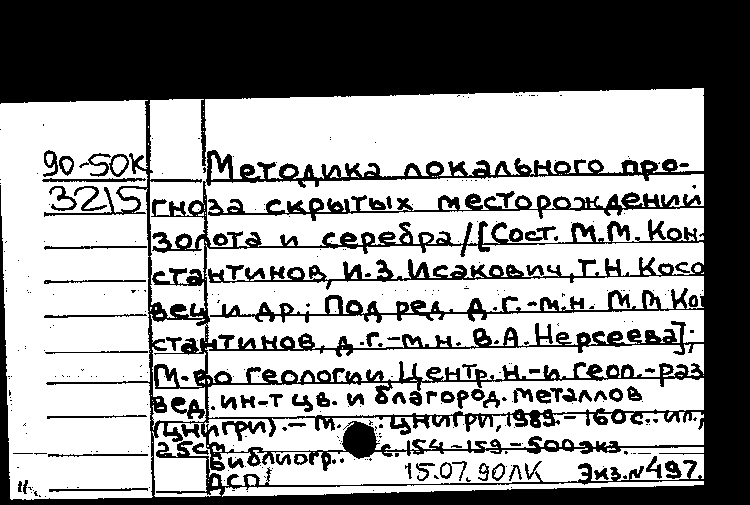 90-50К Методика локального про-
3215 гноза скрытых месторождений
золота и серебра/[Сост. М.М. Кон-
стантинов, И.З. Исакович, Г.Н. Косо
вец и др.; Под ред. д.г.-м.н. М.М Кон
стантинов, д.г.-м.н. В.А. Нерсеева];
М-во геологии, Центр. н.-и геол.-раз
вед. ин-т цв. и благород. металлов
(ЦНИГРИ).- М. : ЦНИГРИ, 1989.- 160 с.: ил.;
25см.
Библиогр.: с. 154-159.- 500 экз.
ДСП! 15.07.90ЛК Экз.№497.